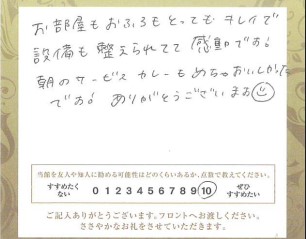 お部屋もおふろもとってもキレイで
設備も整えられてて感動です!
朝のサービスカレーもめちゃおいしかった
です! ありがとうございます
当館を友人や知人に勧める可能性はどのくらいあるか、点数で教えてください。
すすめたくない 0 1 2 3 4 5 6 7 8 9 10 ぜひすすめたい
ご記入ありがとうございます。フロントへお渡しください。
ささやかなお礼をさせていただきます。